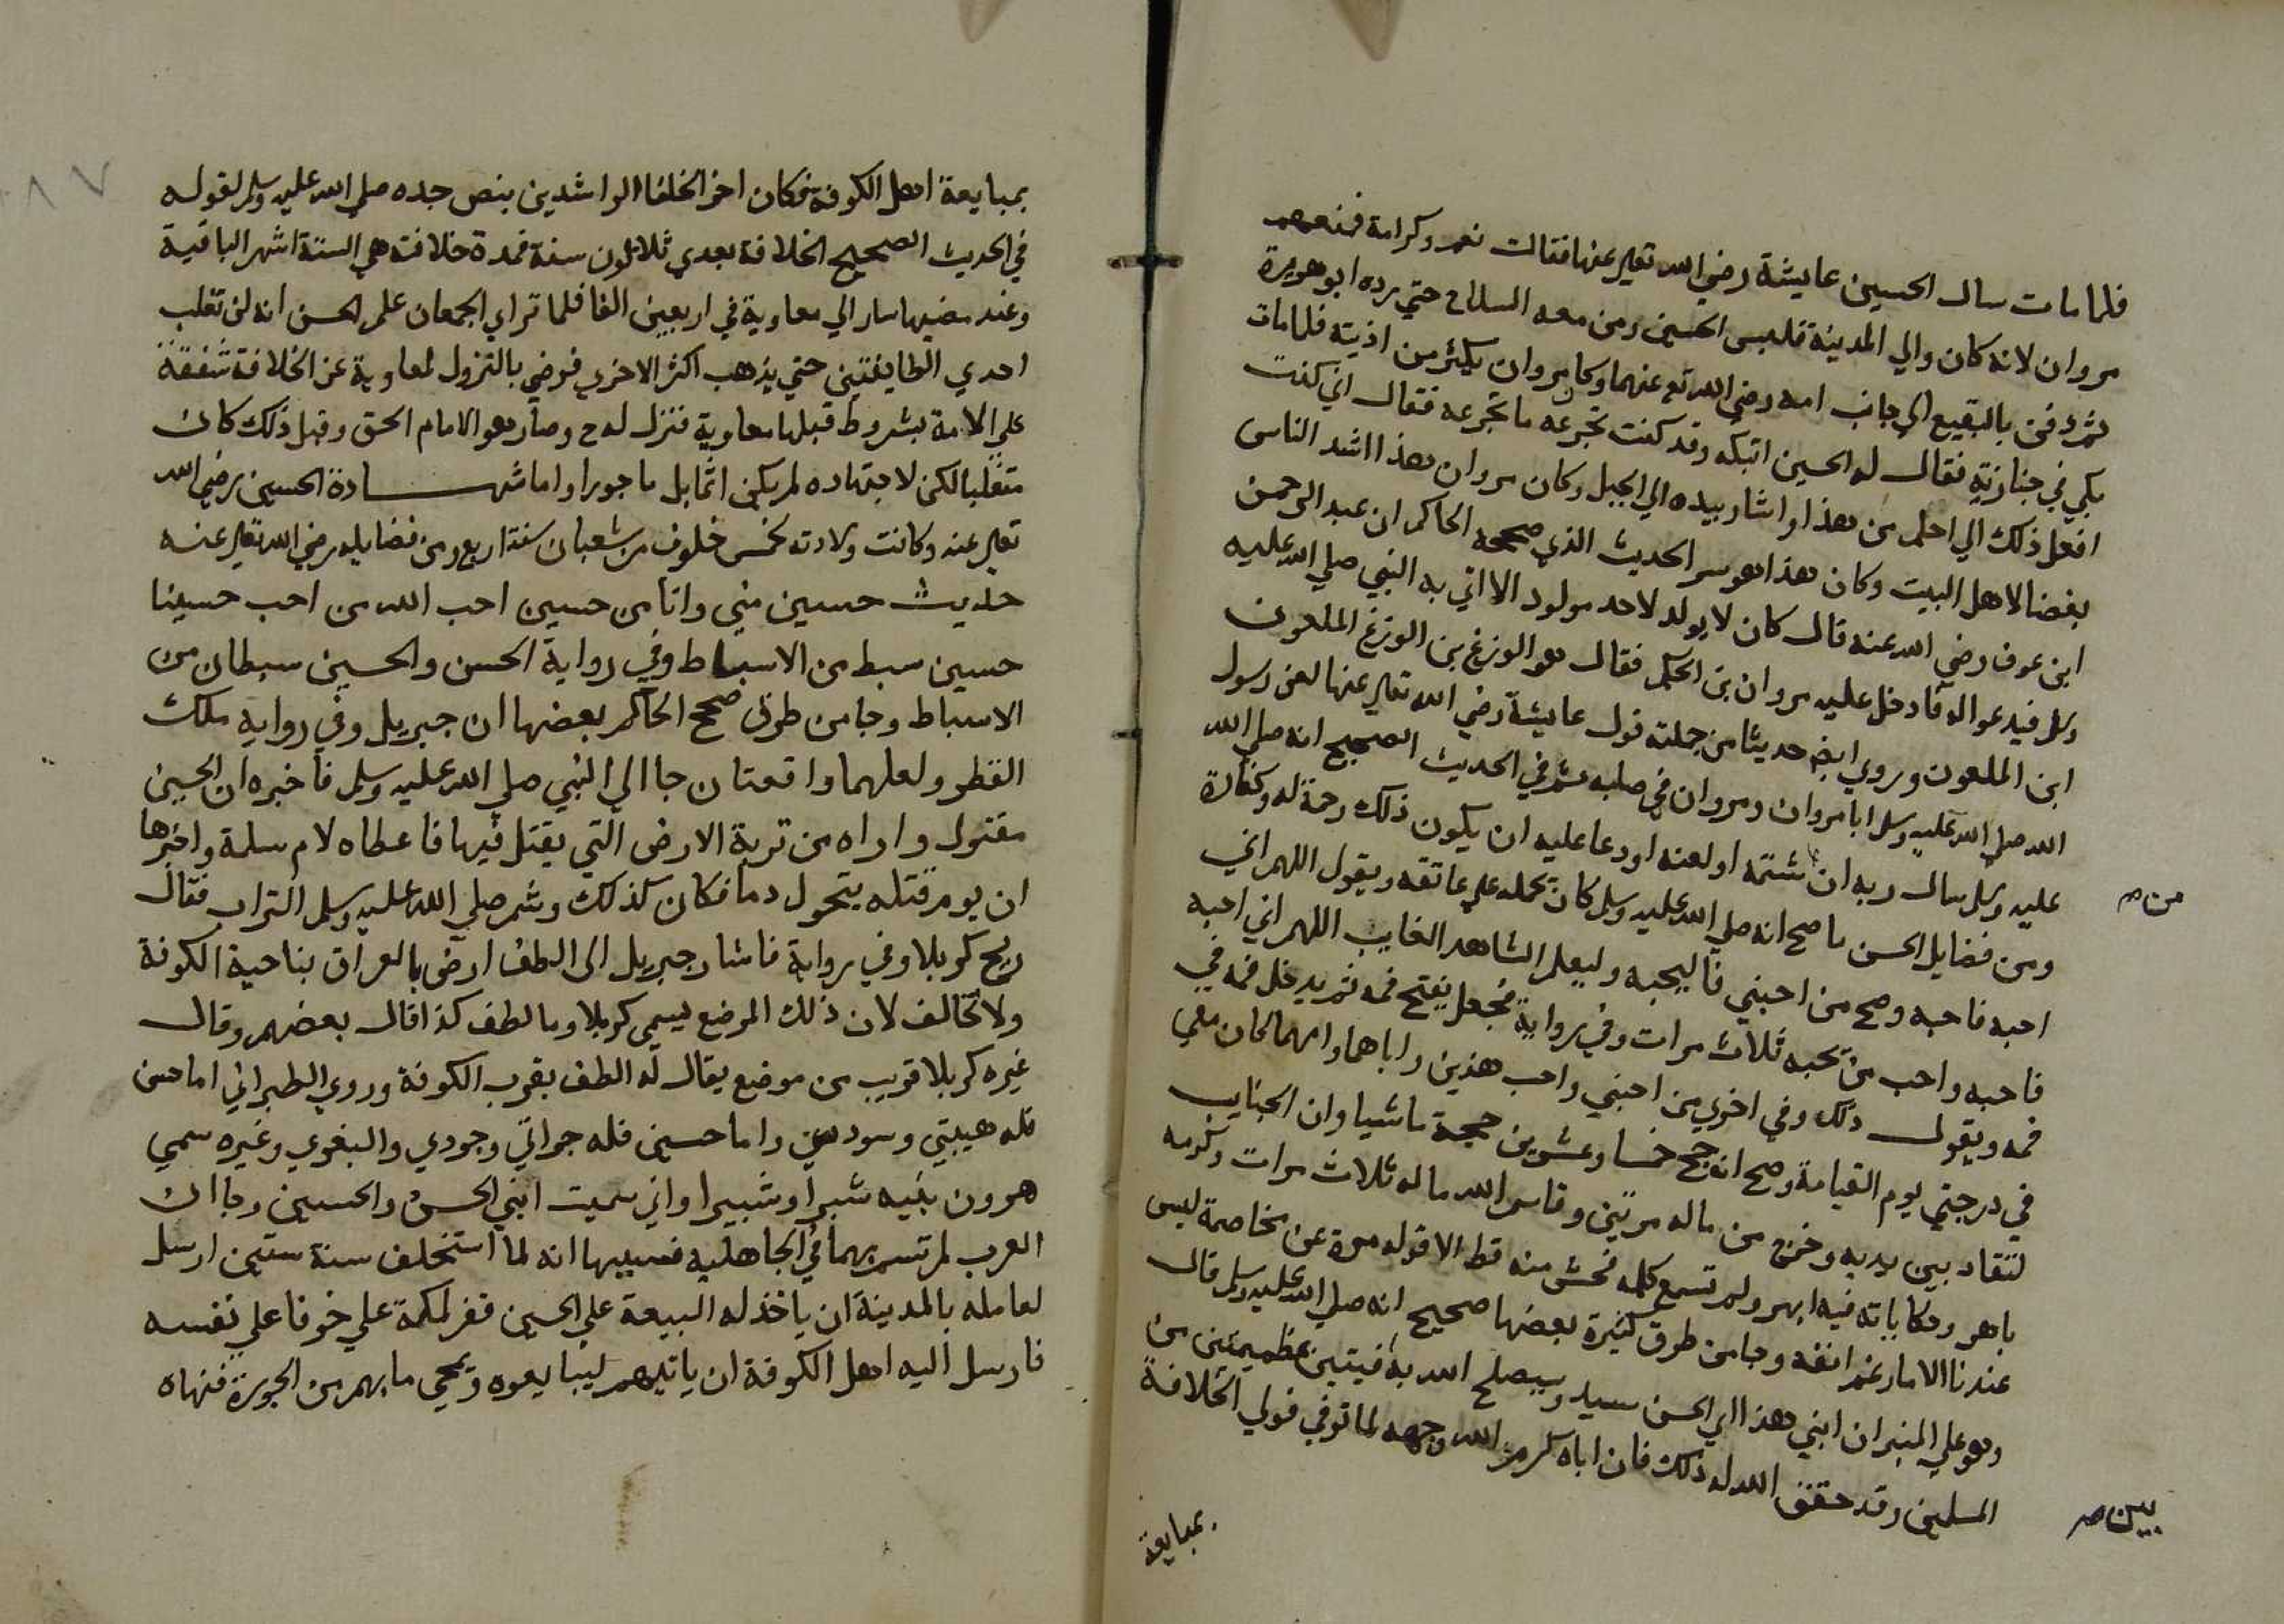 فلما مات سال الحسين عايشة رضي الله تعالى عنها فقالت نعم وكرامة فمنعهم
مروان لانه كان والي المدينة فلبس الحسين ومن معه السلاح حتي رده ابو هريرة
ثم دفن بالبقيع الي جانب امه رضي الله تع عنهما وكان مروان يكثر من اذيته فلما مات
بكي في جنازته فقال له الحسين اتبكه وقد كنت تجرعه ما تجرعه فقال اني كنت
افعل ذلك الي احلم من هذا واشار بيده الي الجبل وكان مروان هذا اشد الناس
بغضا لاهل البيت وكان هذا هو سر الحديث الذي صححه الحاكم ان عبد الرحمن
ابن عوف رضي الله عنه قال كان لا يولد لاحد مولود الا اتي به النبي صلي الله عليه
وسلم فيدعو اله فادخل عليه مروان بن الحكم فقال هو الوزغ بن الوزغ الملعون
ابن الملعون وروي ايض حديثا من جملته قول عايشة رضي الله تعالى عنها لعن رسول
الله صلي الله عليه وسلم ابا مروان ومروان في صلبه ثم في الحديث الصحيح انه صلي الله
عليه وسلم سال ربه ان شتمه او لعنه او دعا عليه ان يكون ذلك رحمة له وكفارة
من صح
ومن فضايل الحسن ما صح انه صلي الله عليه وسلم كان يحمله علي عاتقه ويقول اللهم اني
احبه فاحبه وصح من احبني فاليحبه وليعلم الشاهد الغايب اللهم اني احبه
فاحبه واحب من يحبه ثلاث مرات وفي رواية فجعل يفتح فمه ثم يدخل فمه في
فمه ويقول ذلك وفي اخري من احبني واحب هذين واباهما وامهما كان معي
في درجتي يوم القيامة وصح انه حج خمسا وعشرين حجة ماشيا وان الجنايب
لتقاد بين يديه وخرج من ماله مرتين وقاسم الله ماله ثلاث مرات وكرمه
باهر وحكاياته فيه ابهر ولم تسمع كلمه فحش منه قط الا قوله مرة عن مخاصمة ليس
عندنا الا مارغم انفه وجا من طرق كثيرة بعضها صحيح انه صلي الله عليه وسلم قال
وهو علي المنبر ان ابني هذا اي الحسن سيد وسيصلح الله به فيتين عظيمتين من
المسلمين وقد حقق الله له ذلك فان اباه كرم الله وجهه لما توفي فولي الخلافة
بين صح
بمبايعة
بمبايعة اهل الكوفة فكان اخر الخلفا الراشدين بنص جده صلي الله عليه وسلم لقوله
في الحديث الصحيح الخلافة بعدي ثلاثون سنة فمدة خلافته هي الستة اشهر الباقية
وعند مضيها سار الي معاوية في اربعين الفا فلما تراي الجمعان علم الحسن انه لن تغلب
احدي الطايفتين حتي يذهب اكثر الاخري فرضي بالنزول لمعاوية عن الخلافة شفقة
علي الامة بشروط قبلها معاوية فنزل له ح وصار هو الامام الحق وقبل ذلك كان
متغلبا لكن لاجتهاده لم يكن اثما بل ماجورا واما شهادة الحسين رضي الله
تعالى عنه وكانت ولادته لخمس خلوف من شعبان سنة اربع ومن فضايله رضي الله تعالى عنه
حديث حسين مني وانا من حسين احب الله من احب حسينا
حسين سبط من الاسباط وفي رواية الحسن والحسين سبطان من
الاسباط وجا من طرق صحح الحاكم بعضها ان جبريل وفي رواية ملك
القطر ولعلهما واقعتان جا الي النبي صلي الله عليه وسلم فاخبره ان الحسين
مقتول واراه من تربة الارض التي يقتل فيها فاعطاه لام سلمة واخبرها
ان يوم قتله يتحول دما فكان كذلك وشم صلي الله عليه وسلم التراب فقال
ريح كربلا وفي رواية فاشار جبريل الى الطف ارض بالعراق بناحية الكوفة
ولا تخالف لان ذلك الموضع يسمي كربلا وبالطف كذا قال بعضهم وقال
غيره كربلا قريب من موضع يقال له الطف بقرب الكوفة وروي الطبراني اما حسن
فله هيبتي وسوددي واما حسين فله جراتي وجودي والبغوي وغيره سمي
هرون بنيه شبرا وشبيرا واني سميت ابني الحسن والحسين وجا ان
العرب لم تسم بهما في الجاهليه فسببها انه لما استخلف سنة ستين ارسل
لعامله بالمدينة ان ياخذ له البيعة علي الحسين ففر لمكة علي خوفا علي نفسه
فارسل اليه اهل الكوفة ان ياتيهم ليبايعوه ويمحي ما بهم من الجورة فنهاه
٨٧